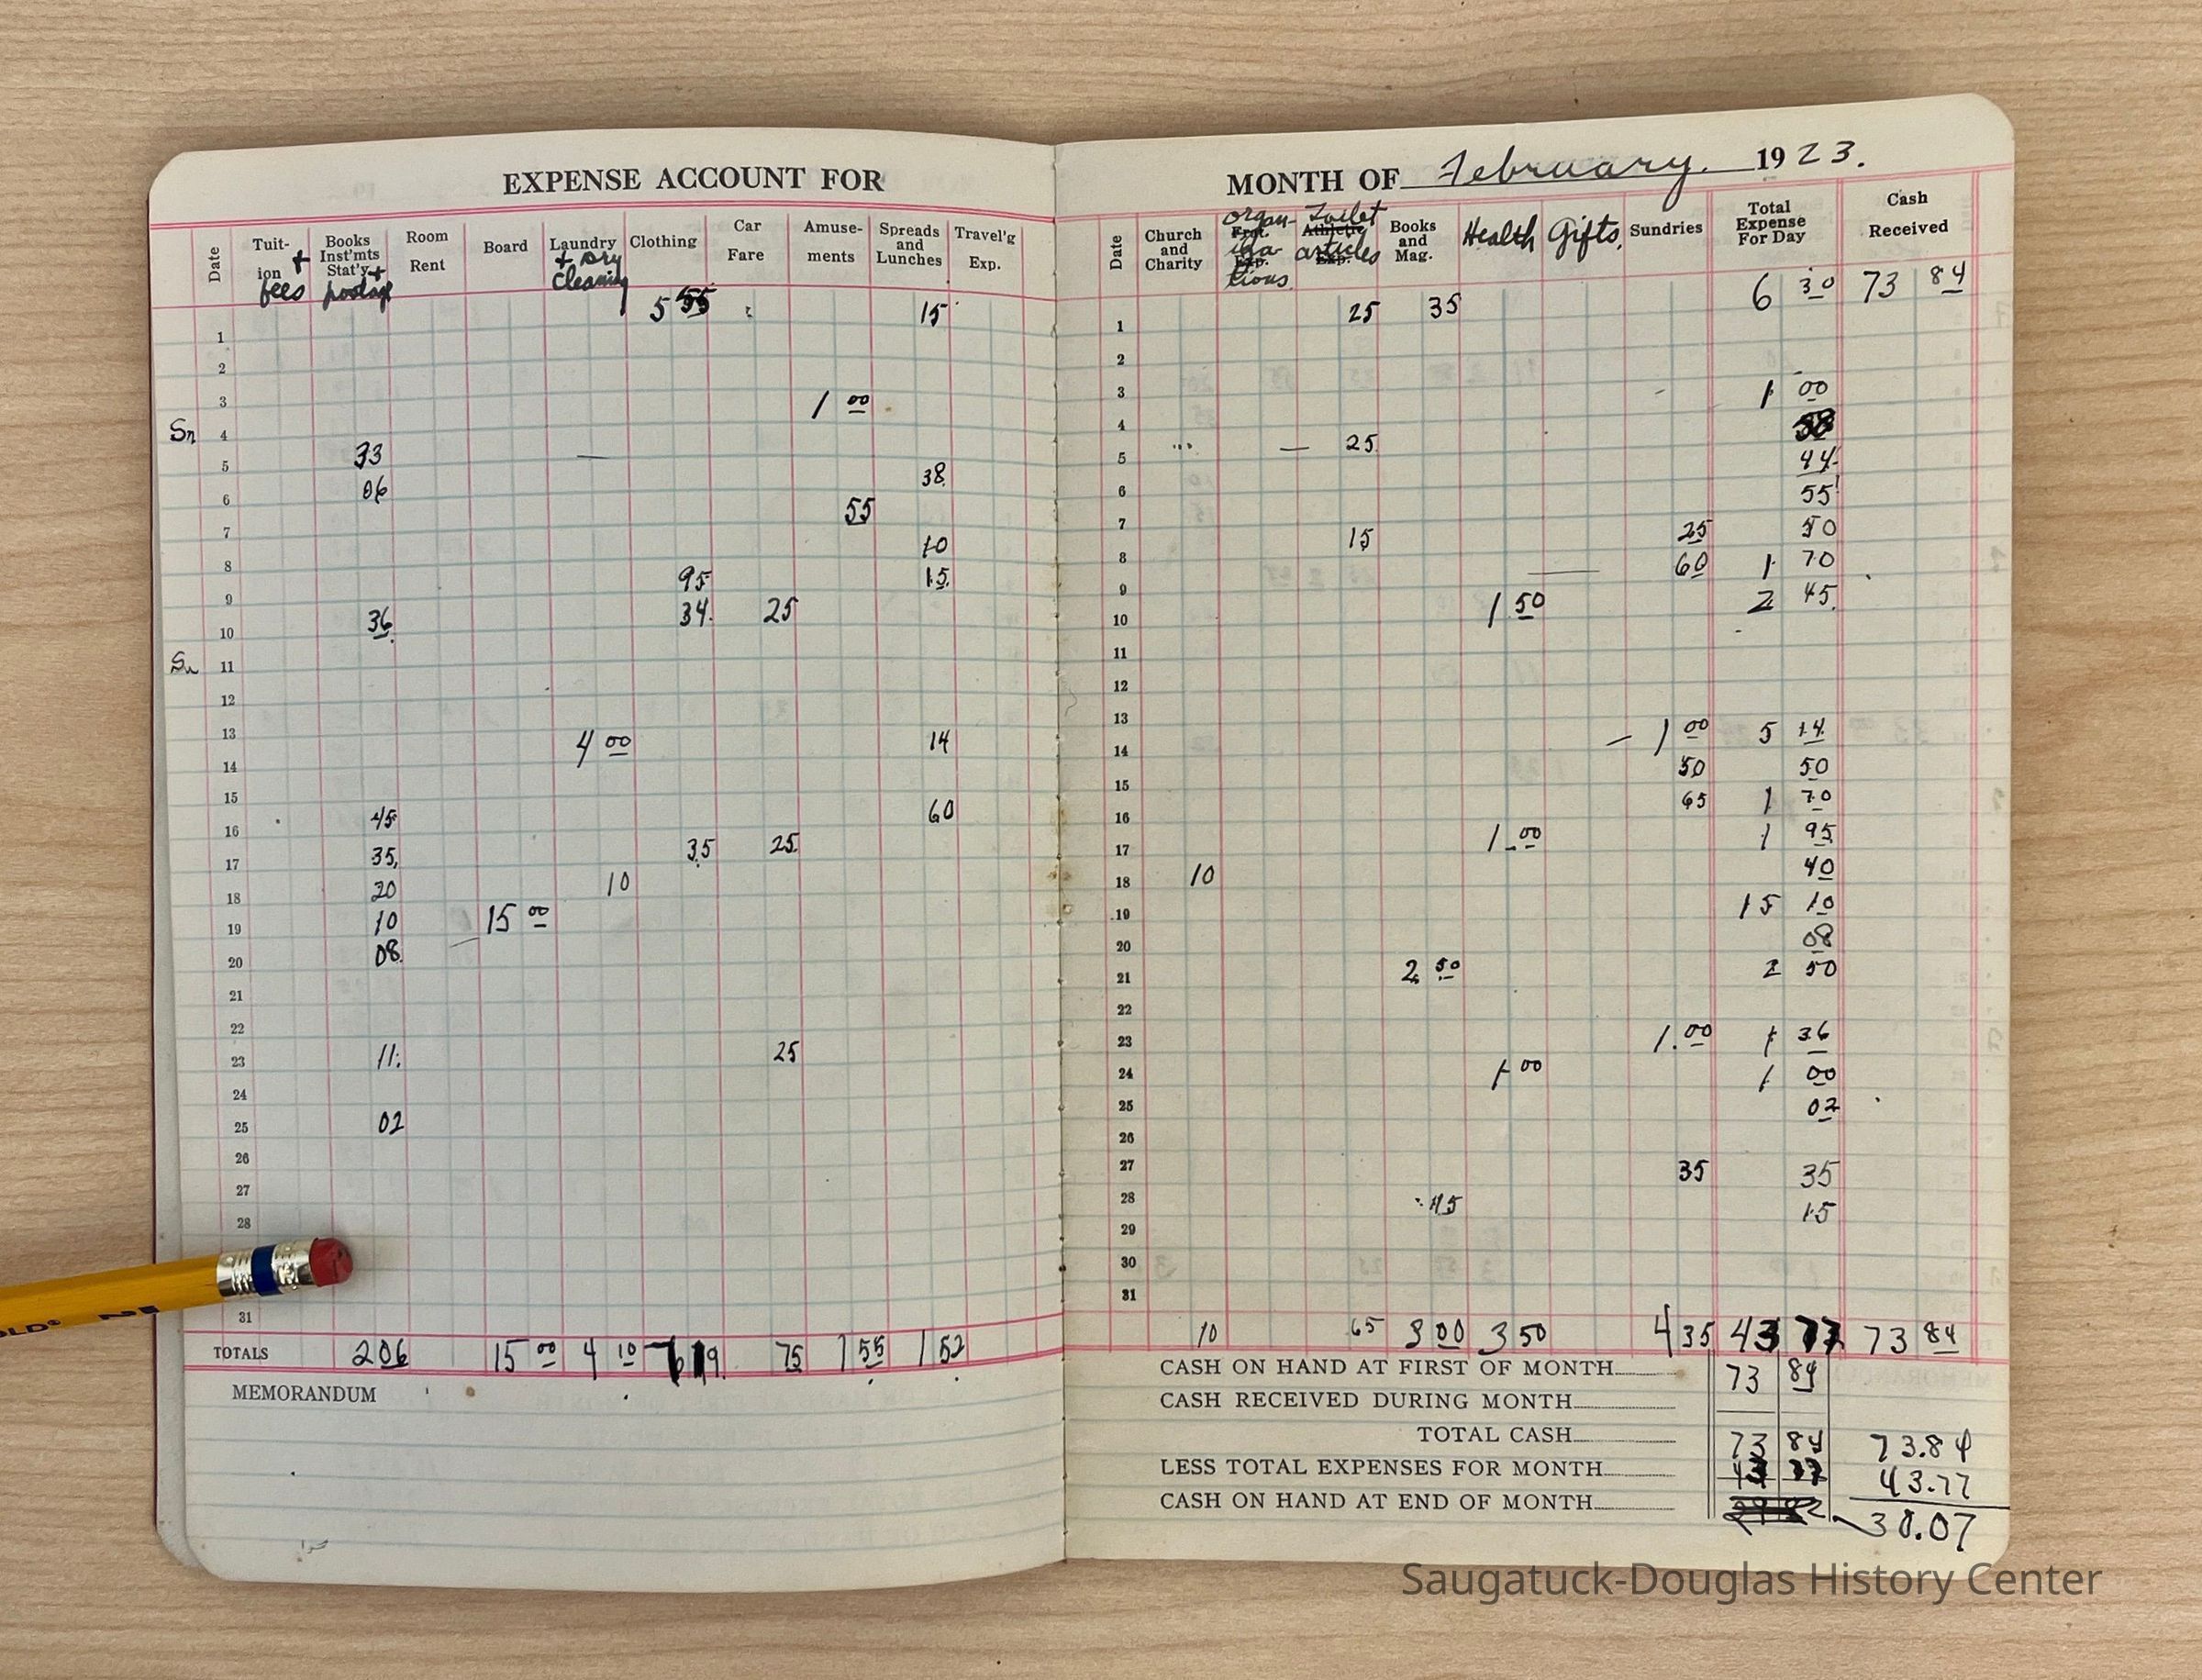 EXPENSE ACCOUNT FOR
Date Tuition + fees Books Inst'mts Stat'y + postage Room Rent Board Laundry + Dry Cleaning Clothing Car Fare Amusements Spreads and Lunches Travel'g Exp.
1 5 55 15
2
3 1 00
Sn 4
5 33
6 06 38
7 55
8 10
9 95 15
10 36 34 25
Su 11
12
13
14 4 00 14
15
16 45 60
17 35 35 25
18 20 10
19 10 15 00
20 08
21
22
23 11 25
24
25 02
26
27
28
31
TOTALS 2 06 15 00 4 10 75 1 55 1 52
MEMORANDUM
MONTH OF February. 1923.
Date Church and Charity organizations Toilet articles Books and Mag. Health Gifts. Sundries Total Expense For Day Cash Received
1 25 35 6 30 73 84
2
3 1 00
4
5 25
6 44
7 55
8 15 25 50
9 60 1 70
10 1 50 2 45
11
12
13
14 1 00 5 14
15 50 50
16 65 1 70
17 1 00 1 95
18 10 40
19 15 10
20 08
21 2 50 2 50
22
23 1.00 1 36
24 1 00 1 00
25 02
26
27 35 35
28 15 15
29
30
31
10 65 3 00 3 50 4 35 43 77 73 84
CASH ON HAND AT FIRST OF MONTH 73 84
CASH RECEIVED DURING MONTH
TOTAL CASH 73 84 73.84
LESS TOTAL EXPENSES FOR MONTH 43 77 43.77
CASH ON HAND AT END OF MONTH 30.07
OLD® 2
Saugatuck-Douglas History Center